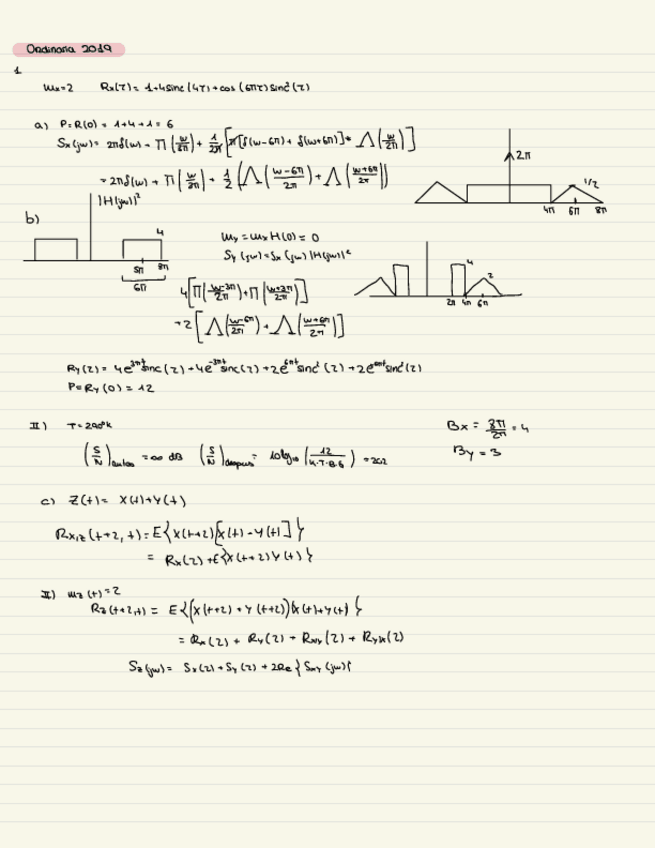 Ordinaria 2019
1
mx=2 Rx(τ)= 1+4sinc(4τ)+cos(6πτ)sinc²(τ)
a) P=R(0) = 1+4+1=6
Sx(jω)= 2πδ(ω) + Π(ω/8π) + 1/2π [π[δ(ω-6π) + δ(ω+6π)] * Λ(ω/2π)]
2π
= 2πδ(ω) + Π(ω/8π) + 1/2 (Λ(ω-6π/2π) + Λ(ω+6π/2π))
1/2
4π 6π 8π
b) |H(jω)|²
4
5π 8π
6π
my = mx H(0) = 0
Sy(jω)=Sx(jω)|H(jω)|²
4 2
2π 4π 6π
4[Π(ω-3π/2π)+Π(ω+3π/2π)]
+2[Λ(ω-6π/2π)+Λ(ω+6π/2π)]
Ry(τ)= 4e³πt sinc(τ)+4e⁻³πt sinc(τ)+2e⁶πt sinc²(τ)+2e sinc²(τ)
P=Ry(0) = 12
II) T=290°K
Bx = 8π/2π = 4
(S/N)antes = ∞ dB (S/N)despues = 10log₁₀(12/K·T·B·G) = 202
By = 3
c) Z(t)= X(t)+Y(t)
Rx,z(t+τ,t)=E{X(t+τ)[X(t)+Y(t)]}
= Rx(τ)+E{X(t+τ)Y(t)}
II) mz(t)=2
Rz(t+τ,t) = E{(X(t+τ)+Y(t+τ))(X(t)+Y(t)}
= Rx(τ) + Ry(τ) + Rxy(τ) + Ryx(τ)
Sz(jω)= Sx(τ)+Sy(τ)+2Re{Sxy(jω)}